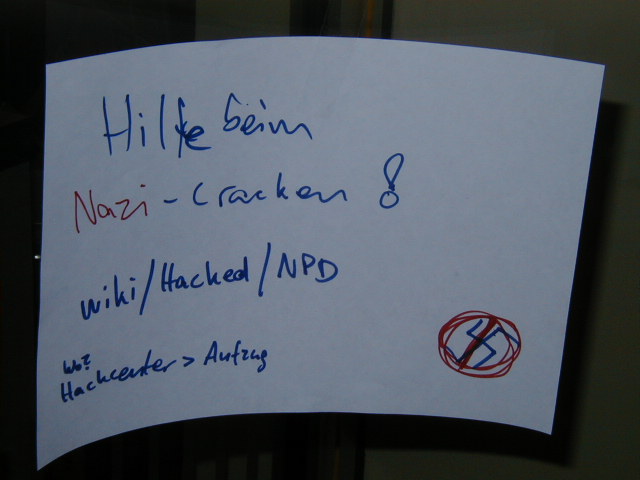 Hilfe beim
Nazi-Cracken!
wiki/Hacked/NPD
Wo?
Hackcenter > Aufzug